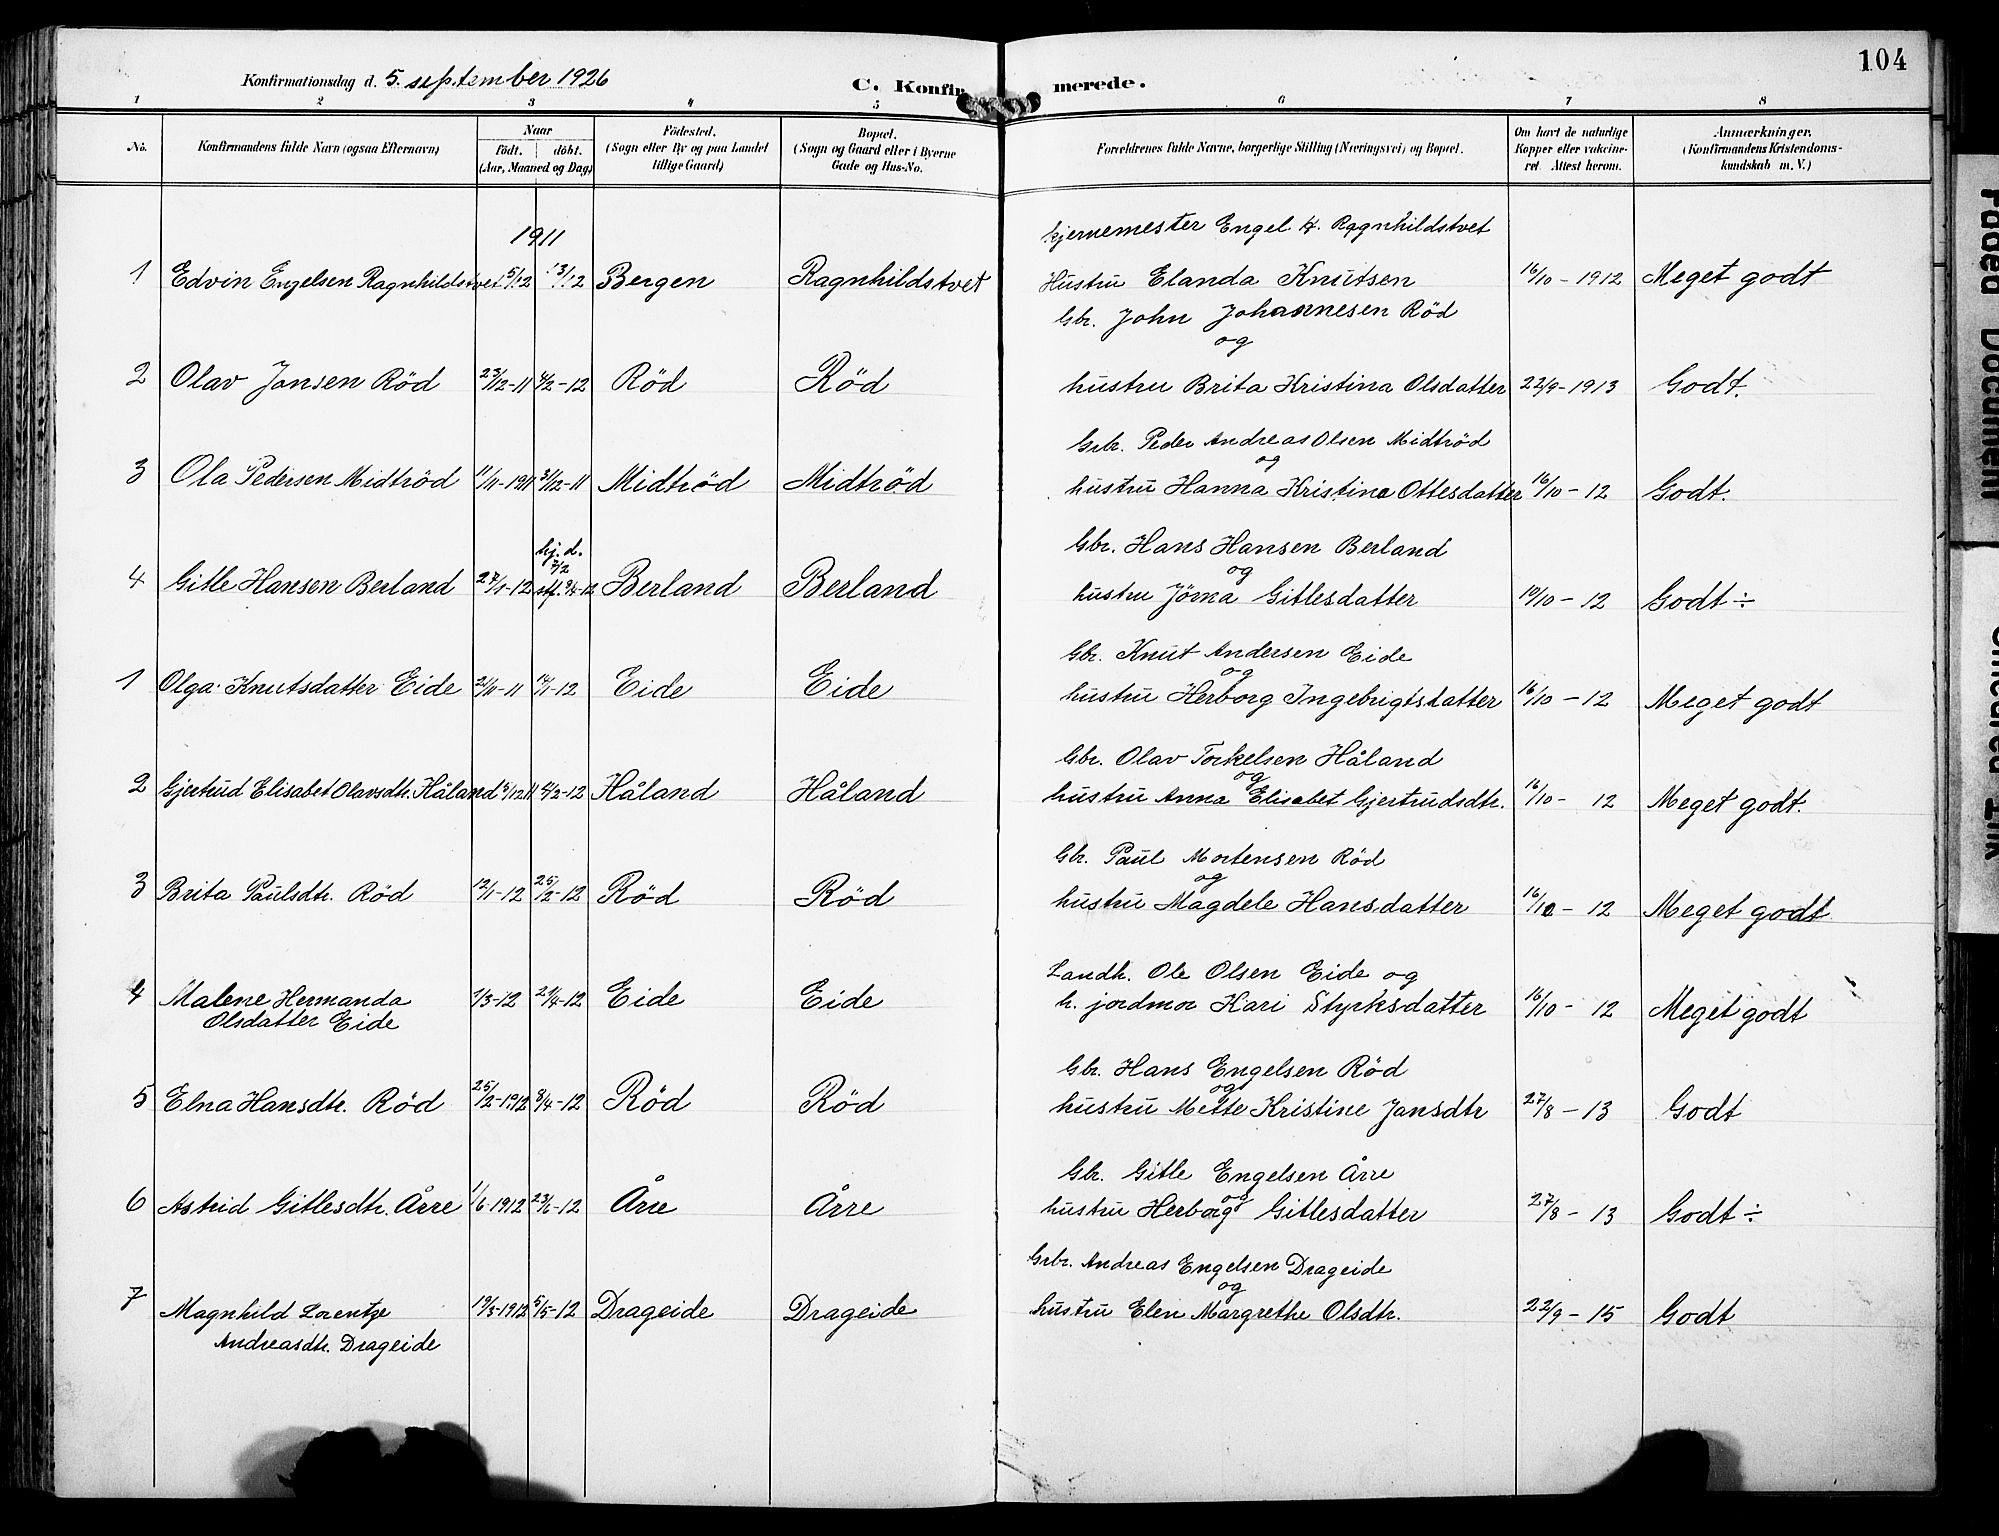 104
Konfirmationsdag d. 5. september 1926 C. Konfirmerede.
1 2 3 4 5 6 7 8
No. Konfirmandens fulde Navn (ogsaa Efternavn) Naar födt. döbt. (Aar, Maaned og Dag) Födested. (Sogn eller By og paa Landet tillige Gaard) Bopæl. (Sogn og Gaard eller i Byerne Gade og Hus-No. Forældrenes fulde Navne, borgerlige Stilling (Næringsvei) og Bopæl. Om havt de naturlige Kopper eller vaccineret. Attest herom. Anmærkninger. (Konfirmandens Kristendomskundskab m. V.)
1911
kjernemester Engel K. Ragnhildstvet
1 Edvin Engelsen Ragnhildstvet 5/12 13/12 Bergen Ragnhildstvet Hustru Elanda Knutsen 16/10 - 1912 Meget godt
Gbr. John Johannesen Röd
og
2 Olav Jonsen Röd 23/12-11 4/2-12 Röd Röd hustru Brita Kristina Olsdatter 22/9-1913 Godt.
Grbr. Peder Andreas Olsen Midtröd
og
3 Ola Pedersen Midtröd 11/11-1911 3/12-11 Midtröd Midtröd hustru Hanna Kristina Ottesdatter 16/10 - 12 Godt.
hj. d. 7/2
Gbr. Hans Hansen Berland
og
4 Gitle Hansen Berland 27/1-12 stf. 9/4-12 Berland Berland hustru Jörna Gitlesdatter 19/10 - 12 Godt ÷
Gbr. Knut Andersen Eide
og
1 Olga Knutsdatter Eide 21/11-11 14/1-12 Eide Eide hustru Herborg Ingebrigtsdatter 16/10 - 12 Meget godt
Gbr. Olav Torkelsen Håland
og
2 Gjertrud Elisabet Olavsdtr. Håland 5/12 11 4/2-12 Håland Håland hustru Anna Elisabet Gjertrudsdtr. 16/10 - 12 Meget godt.
Gbr. Paul Mortensen Röd
og
3 Brita Paulsdtr. Röd 12/1-12 25/2-12 Röd Röd hustru Magdele Hansdatter 16/10 - 12 Meget godt
Landh. Ole Olsen Eide og
4 Malene Hermanda 1/3-12 21/4-12 Eide Eide h. jordmor Kari Styrksdatter 16/10 - 12 Meget godt
Olsdatter Eide
Gbr. Hans Engelsen Röd
og
5 Elna Hansdtr. Röd 25/2-1912 8/4-12 Röd Röd hustru Mette Kristine Jansdtr 27/8 - 13 Godt
Gbr. Gitle Engelsen Årre
og
6 Astrid Gitlesdtr. Årre 1/6-1912 23/6-12 Årre Årre hustru Herborg Gitlesdatter 27/8 - 13 Godt ÷
Grbr. Andreas Engelsen Drageide
og
7 Magnhild Lorentze 19/3-1912 5/5-12 Drageide Drageide hustru Elen Margrethe Olsdtr. 22/9 - 15 Godt
Andreasdtr. Drageide
Faded Document
Smeared Ink